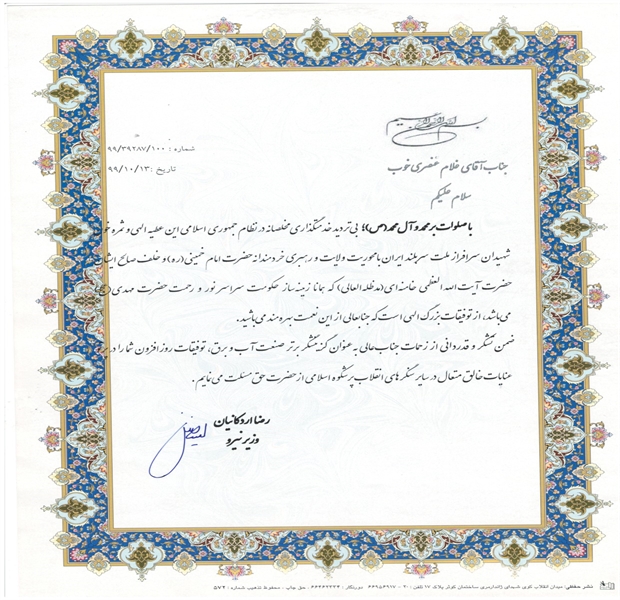 بسم الله الرحمن الرحیم
شماره : ۹۹/۳۹۲۸۷/۱۰۰
تاریخ : ۹۹/۱۰/۱۳
جناب آقای غلام عنصری خوب
سلام علیکم
با صلوات بر محمد و آل محمد (ص)؛ بی تردید خدمتگذاری مخلصانه در نظام جمهوری اسلامی این عطیه الهی و ثمره خون
شهیدان سرافراز ملت سربلند ایران با محوریت ولایت و رهبری خردمندانه حضرت امام خمینی (ره) و خلف صالح ایشان
حضرت آیت الله العظمی خامنه ای (مدظله العالی) که همانا زمینه ساز حکومت سراسر نور و رحمت حضرت مهدی (عج)
می باشد، از توفیقات بزرگ الهی است که جنابعالی از این نعمت بهره مند می باشید.
ضمن تشکر و قدردانی از زحمات جناب عالی به عنوان کنشگر برتر صنعت آب و برق، توفیقات روز افزون شما را در پرتو
عنایات خالق متعال در سایر سنگرهای انقلاب پرشکوه اسلامی از حضرت حق مسئلت می نمایم.
رضا اردکانیان
وزیر نیرو
نشر حفظی: میدان انقلاب کوی شهدای ژاندارمری ساختمان کوثر پلاک ۱۷ تلفن: ۲۰۰ - ۶۶۹۵۶۹۱۷ دورنگار: ۶۶۴۶۲۳۳۴ حق چاپ محفوظ تذهیب شماره: ۵۷۲